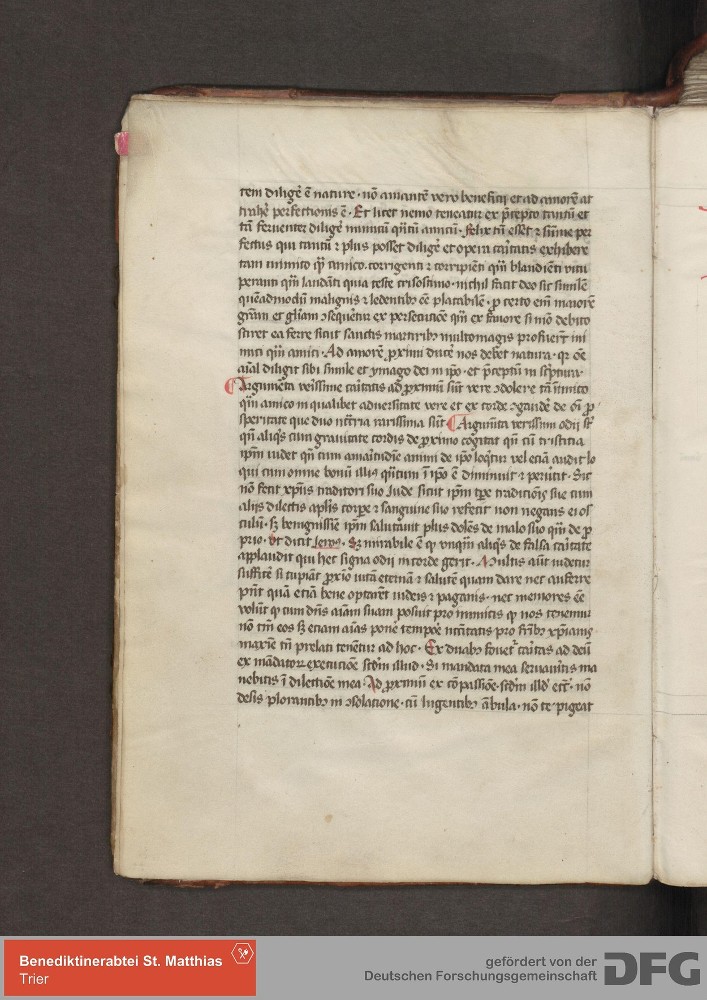 tem diligē̄ ē nature · nō amantē vero beneficij et ad amorē at
trahē perfectionis ē · Et licet nemo teneatur ex p̄cepto tantū et
tā feruenter diligē inimicū qūtū amicū · felix tn̄ esset ⁊ sūme per
fectus qui tantū ⁊ plus posset diligē et opera caritatis exhibere
tam inimico qͣ̄ amico · corrigenti ⁊ corripiēti qͣ̄ blandiēti vitu
peranti qͣ̄ laudāti quia teste crisostimo · nichil facit deo sic similē
quēadmodū malignis ⁊ ledentibꝫ eē placabilē · ꝓ certo em̄ maiorē
grām et gliam ↄsequētur ex persecutiōe qͣ̄ ex fauore si mō debito
sciret ea ferre sicut sanctis martiribꝫ multomagis profuerūt ini
mici qͣ̄ amici · Ad amorē ꝓximi ducē nos debet natura · qꝛ oē
aīal diligit sibi simile et ymago dei in ip̄o · et p̄ceptū in sc̄ptura ·
Argumēta verissime caritatis ad ꝓximū sūt vere ↄdolere tā inimico
qͣ̄ amico in qualibet aduersitate vere et ex corde ↄgaudē de oī ꝓ
speritate que duo nr̄eria rarissima sūt Argumēta verissim odij st̄
qn̄ aliqͥs cum grauitate cordis de ꝓximo cogitat qn̄ cū tristicia
ip̄m videt qn̄ cum amaritudīe animi de ip̄o loqͥtur vel etiā audit lo
qui cum omne bonū illiꝰ qūtum ī ip̄o ē diminuit ⁊ peruertit · Sic
nō fecit xp̄us traditori suo Jude sicut ip̄m tpe tradicioīs sue cum
alijs dilectis aplis corpe ⁊ sanguine suo refecit non negans ei os
culū · sꝫ benignissīe ip̄m salutauit plus dolēs de malo suo qͣ̄ de ꝓ
prio · vt dicit Jeroꝰ · Sꝫ mirabile ē qꝫ vnqͣ̄ aliqͥs de falsa caritate
applaudit qui hec signa odij in corde gerit · Multis aūt videtur
sufficē si cupiāt ꝓxīo vitā eternā ⁊ salutē quam dare nec auferre
pn̄t quā etiā bene optarēt iudeis ⁊ paganis · nec memores eē
volūt qꝫ cum dn̄s aīam suam posuit pro inimicis qꝫ nos tenemur
nō tm̄ eos sꝫ etiam aīas ponē tempoē nc̄citatis pro fr̄ibꝫ xp̄ianis
maxīe tn̄ prelati tenētur ad hoc · Ex duabꝫ fouetᷣ caritas ad deū
ex mādatoꝝ executiōe scdm illud · Si mandata mea seruaueritis ma
nebitis ī dilectiōe mea · Ad ꝓximū ex cōpassiōe · scdm illd ecc̄ · nō
desis plorantibꝫ in ↄsolacione · cū lugentibꝫ ābula · nō te pigeat
Benediktinerabtei St. Matthias
Trier
gefördert von der
Deutschen Forschungsgemeinschaft
DFG